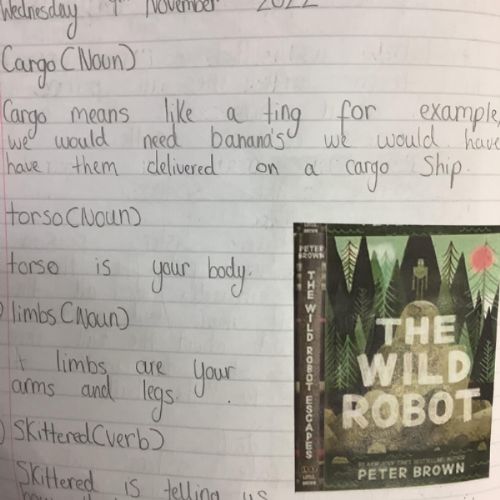 Wednesday 9th November 2022
Cargo (Noun)
Cargo means like a ting for example,
we would need banana's we would have
have them delivered on a cargo Ship.
torso (Noun)
torso is your body.
limbs (Noun)
limbs are your
arms and legs.
Skittered (verb)
Skittered is telling us
PETER BROWN
THE WILD ROBOT ESCAPES
THE
WILD
ROBOT
PETER BROWN